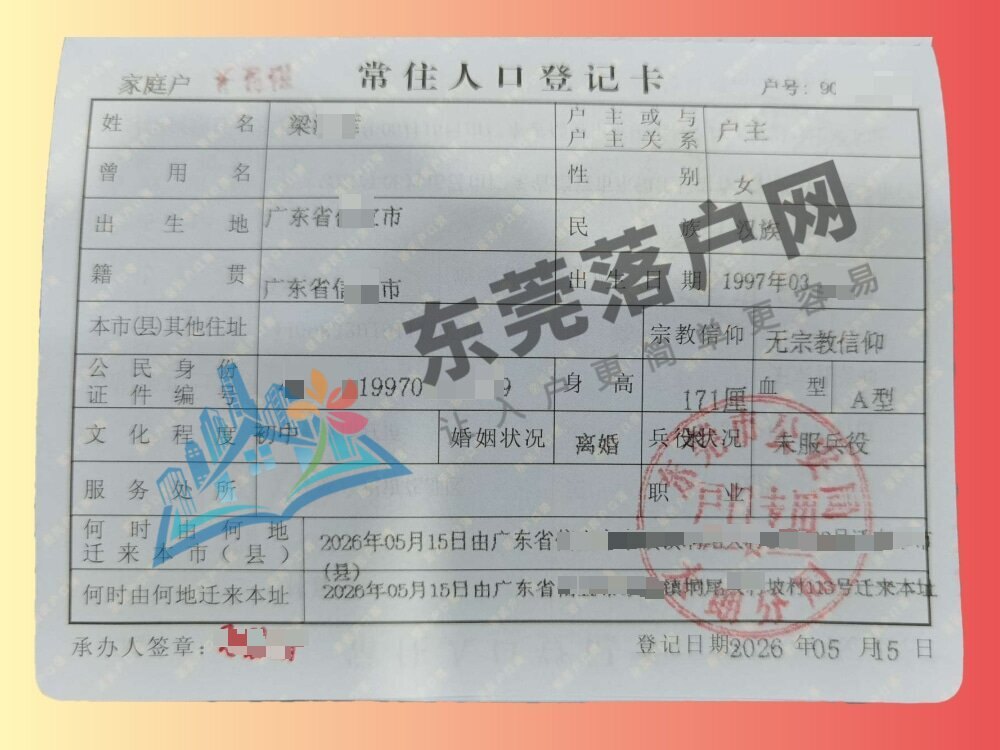 家庭户
常住人口登记卡
户号: 90
姓名 梁 户主或与户主关系 户主
曾用名 性别 女
出生地 广东省信 市 民族 汉族
籍贯 广东省信 市 出生日期 1997年03
本市(县)其他住址 宗教信仰 无宗教信仰
公民身份证件编号 19970 9 身高 171厘米 血型 A型
文化程度 初中 婚姻状况 离婚 兵役状况 未服兵役
服务处所 职业
何时由何地迁来本市(县) 2026年05月15日由广东省 市(县)
何时由何地迁来本址 2026年05月15日由广东省 镇垌尾 坡村113号迁来本址
承办人签章:
登记日期 2026 年05 月15 日
东莞落户网
让入户更简单更容易
东莞市公安局
户口专用
分局